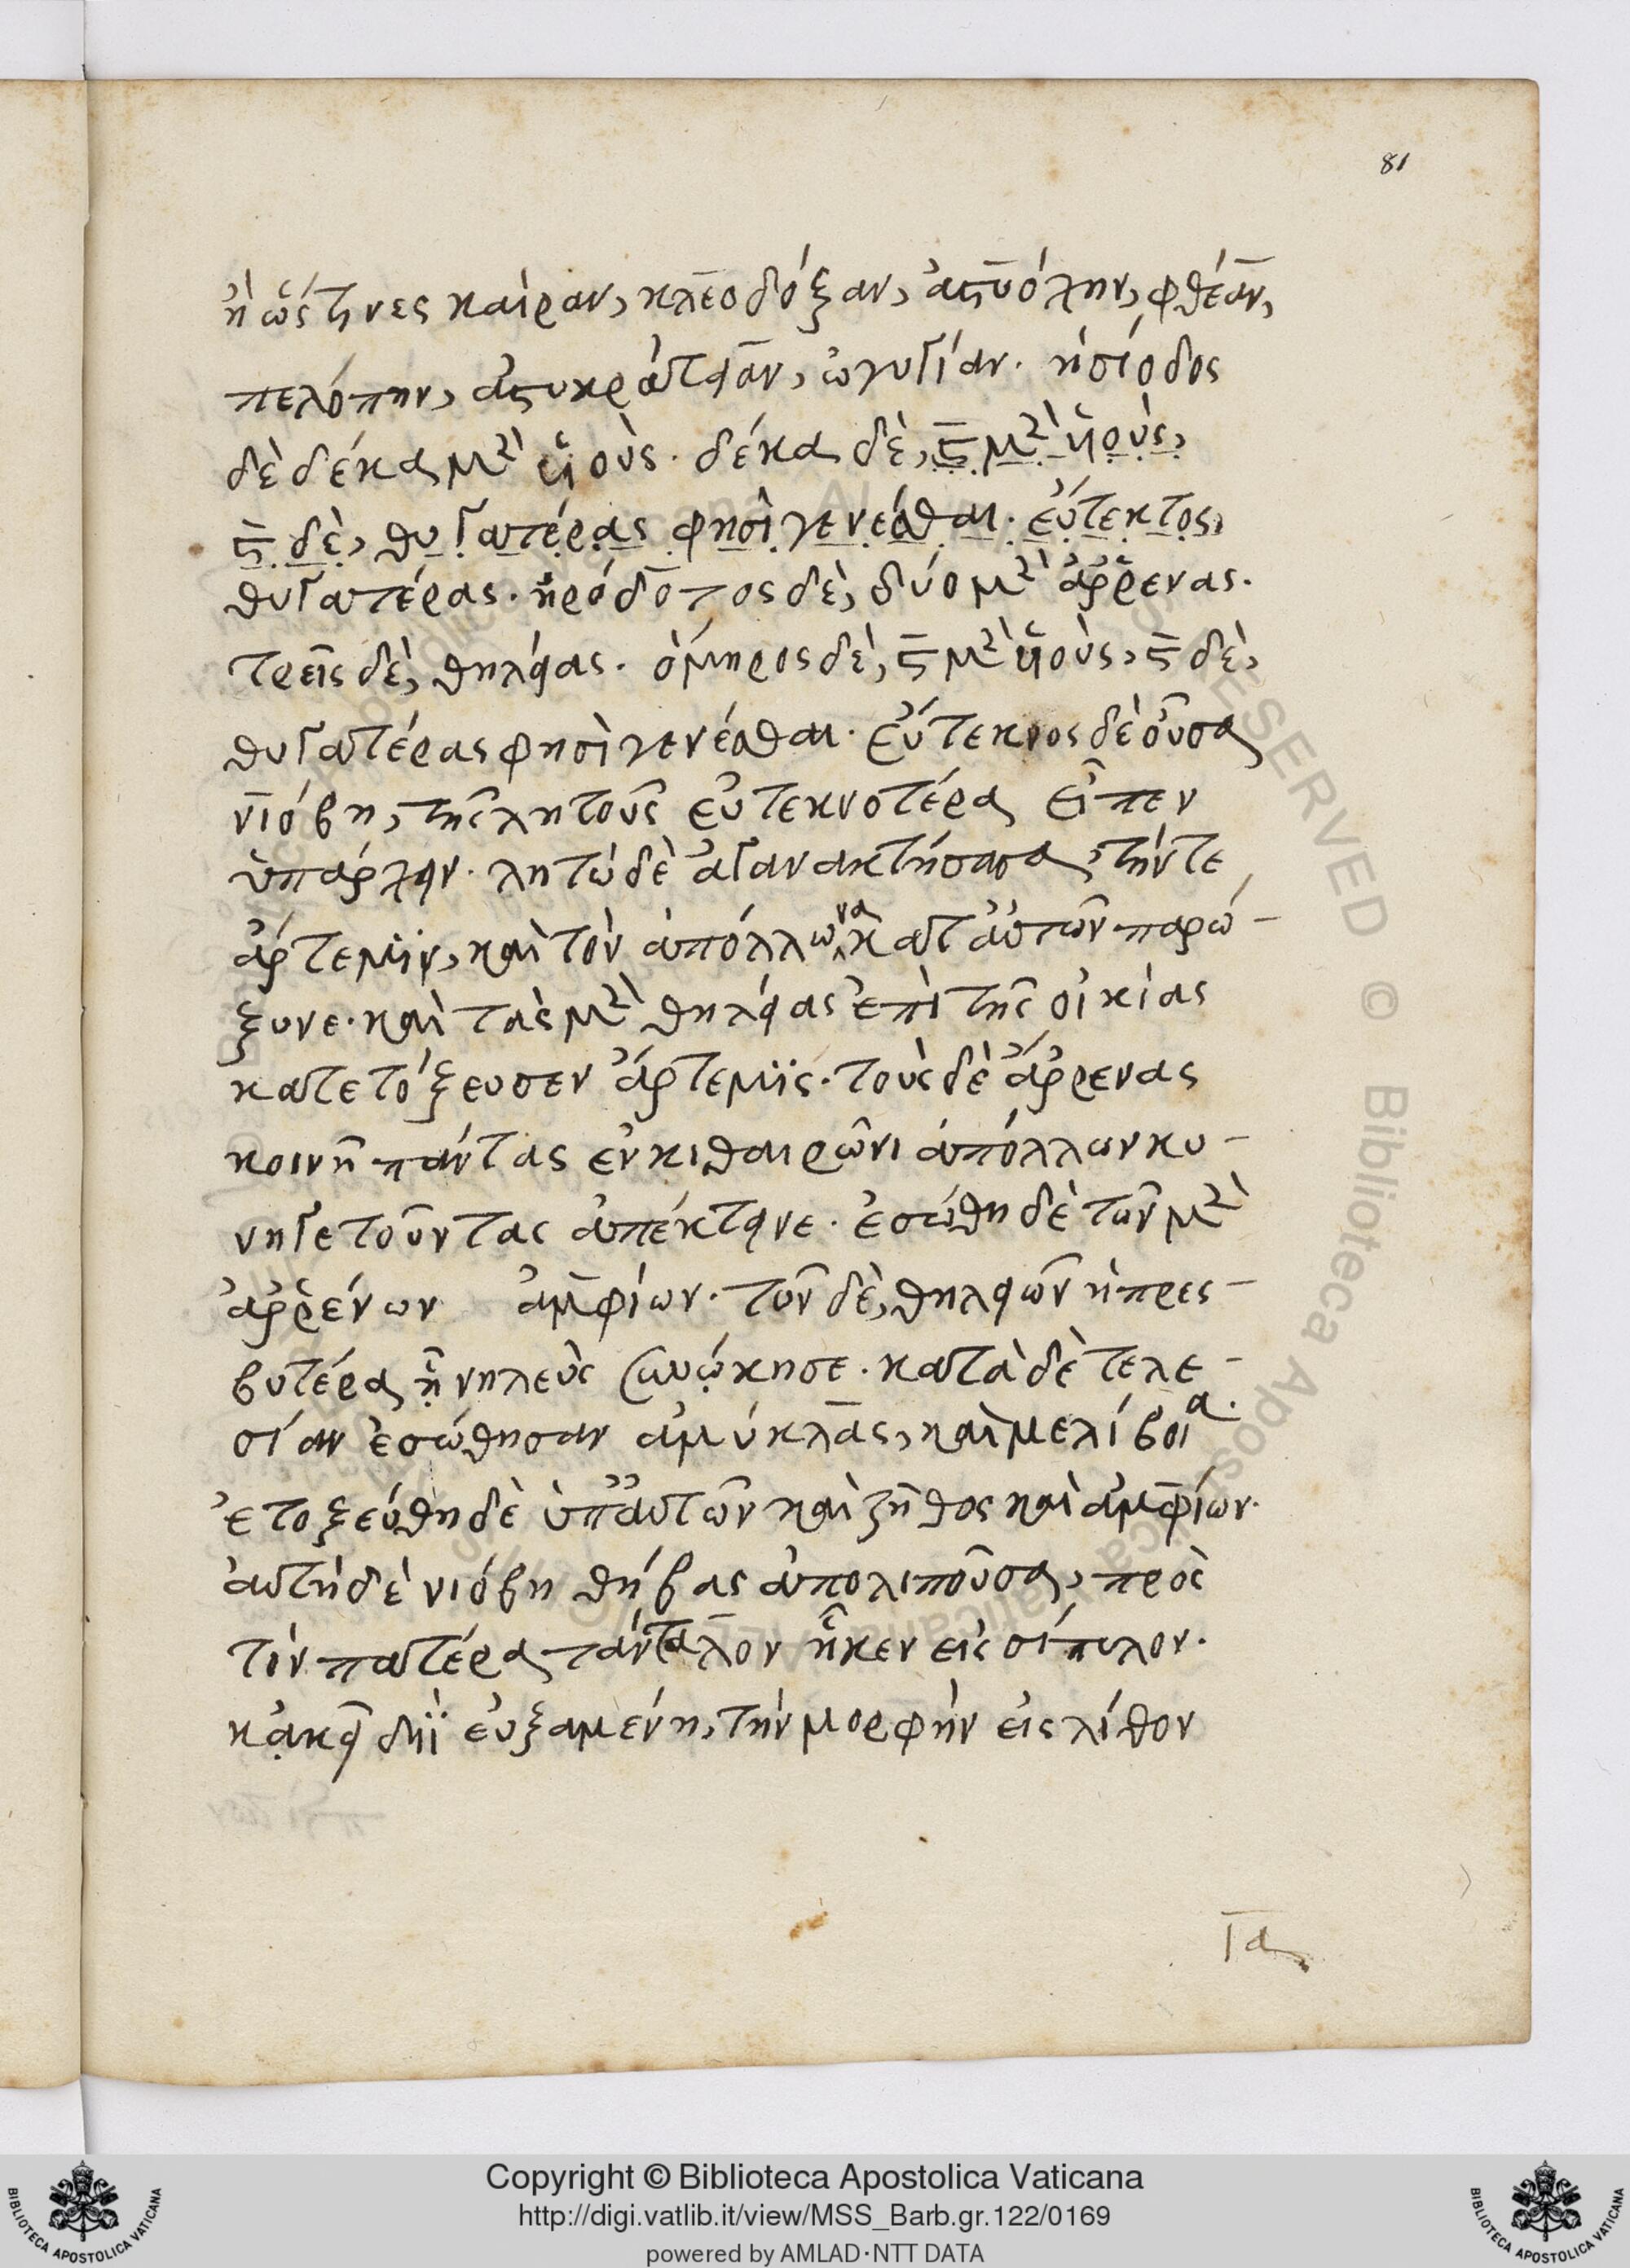 81
ἢ ὥς τινες καίραν, κλεοδόξαν, ἀστυόχην, φθίαν,
πελόπην, ἀστυκράτειαν, ὠγυγίαν. ἡσίοδος
δὲ δέκα μὲν υἱοὺς. δέκα δὲ, ϛ μὲν υἱοὺς,
ϛ δὲ, θυγατέρας φησὶ γενέσθαι. εὔτεκτος
θυγατέρας. ἡρόδοτος δὲ, δύο μὲν ἄρρενας.
τρεῖς δὲ, θηλείας. ὅμηρος δὲ, ϛ μὲν υἱοὺς, ϛ δὲ,
θυγατέρας φησὶ γενέσθαι. εὔτεκνος δὲ οὖσα
νιόβη, τῆς λητοῦς εὐτεκνοτέρα εἶπεν
ὑπάρχειν. λητὼ δὲ ἀγανακτήσασα, τήν τε
ἄρτεμιν, καὶ τὸν ἀπόλλωνα κατ' αὐτῶν παρώ-
ξυνε. καὶ τὰς μὲν θηλείας ἐπὶ τῆς οἰκίας
κατετόξευσεν ἄρτεμις. τοὺς δὲ ἄρρενας
κοινῇ πάντας ἐν κιθαιρῶνι ἀπόλλων κυ-
νηγετοῦντας ἀπέκτεινε. ἐσώθη δὲ τῶν μὲν
ἀρρένων ἀμφίων. τῶν δὲ, θηλειῶν ἡ πρεσ-
βυτέρα ᾗ νηλεὺς συνῴκησε. κατὰ δὲ τελε-
σίαν ἐσώθησαν ἀμύκλας, καὶ μελίβοια.
ἐτοξεύθη δὲ ὑπ' αὐτῶν καὶ ζῆθος καὶ ἀμφίων.
αὐτὴ δὲ νιόβη θήβας ἀπολιποῦσα, πρὸς
τὸν πατέρα τάνταλον ἧκεν εἰς σίπυλον.
κἀκεῖ διῒ εὐξαμένη, τὴν μορφὴν εἰς λίθον
Copyright © Biblioteca Apostolica Vaticana
http://digi.vatlib.it/view/MSS_Barb.gr.122/0169
powered by AMLAD·NTT DATA